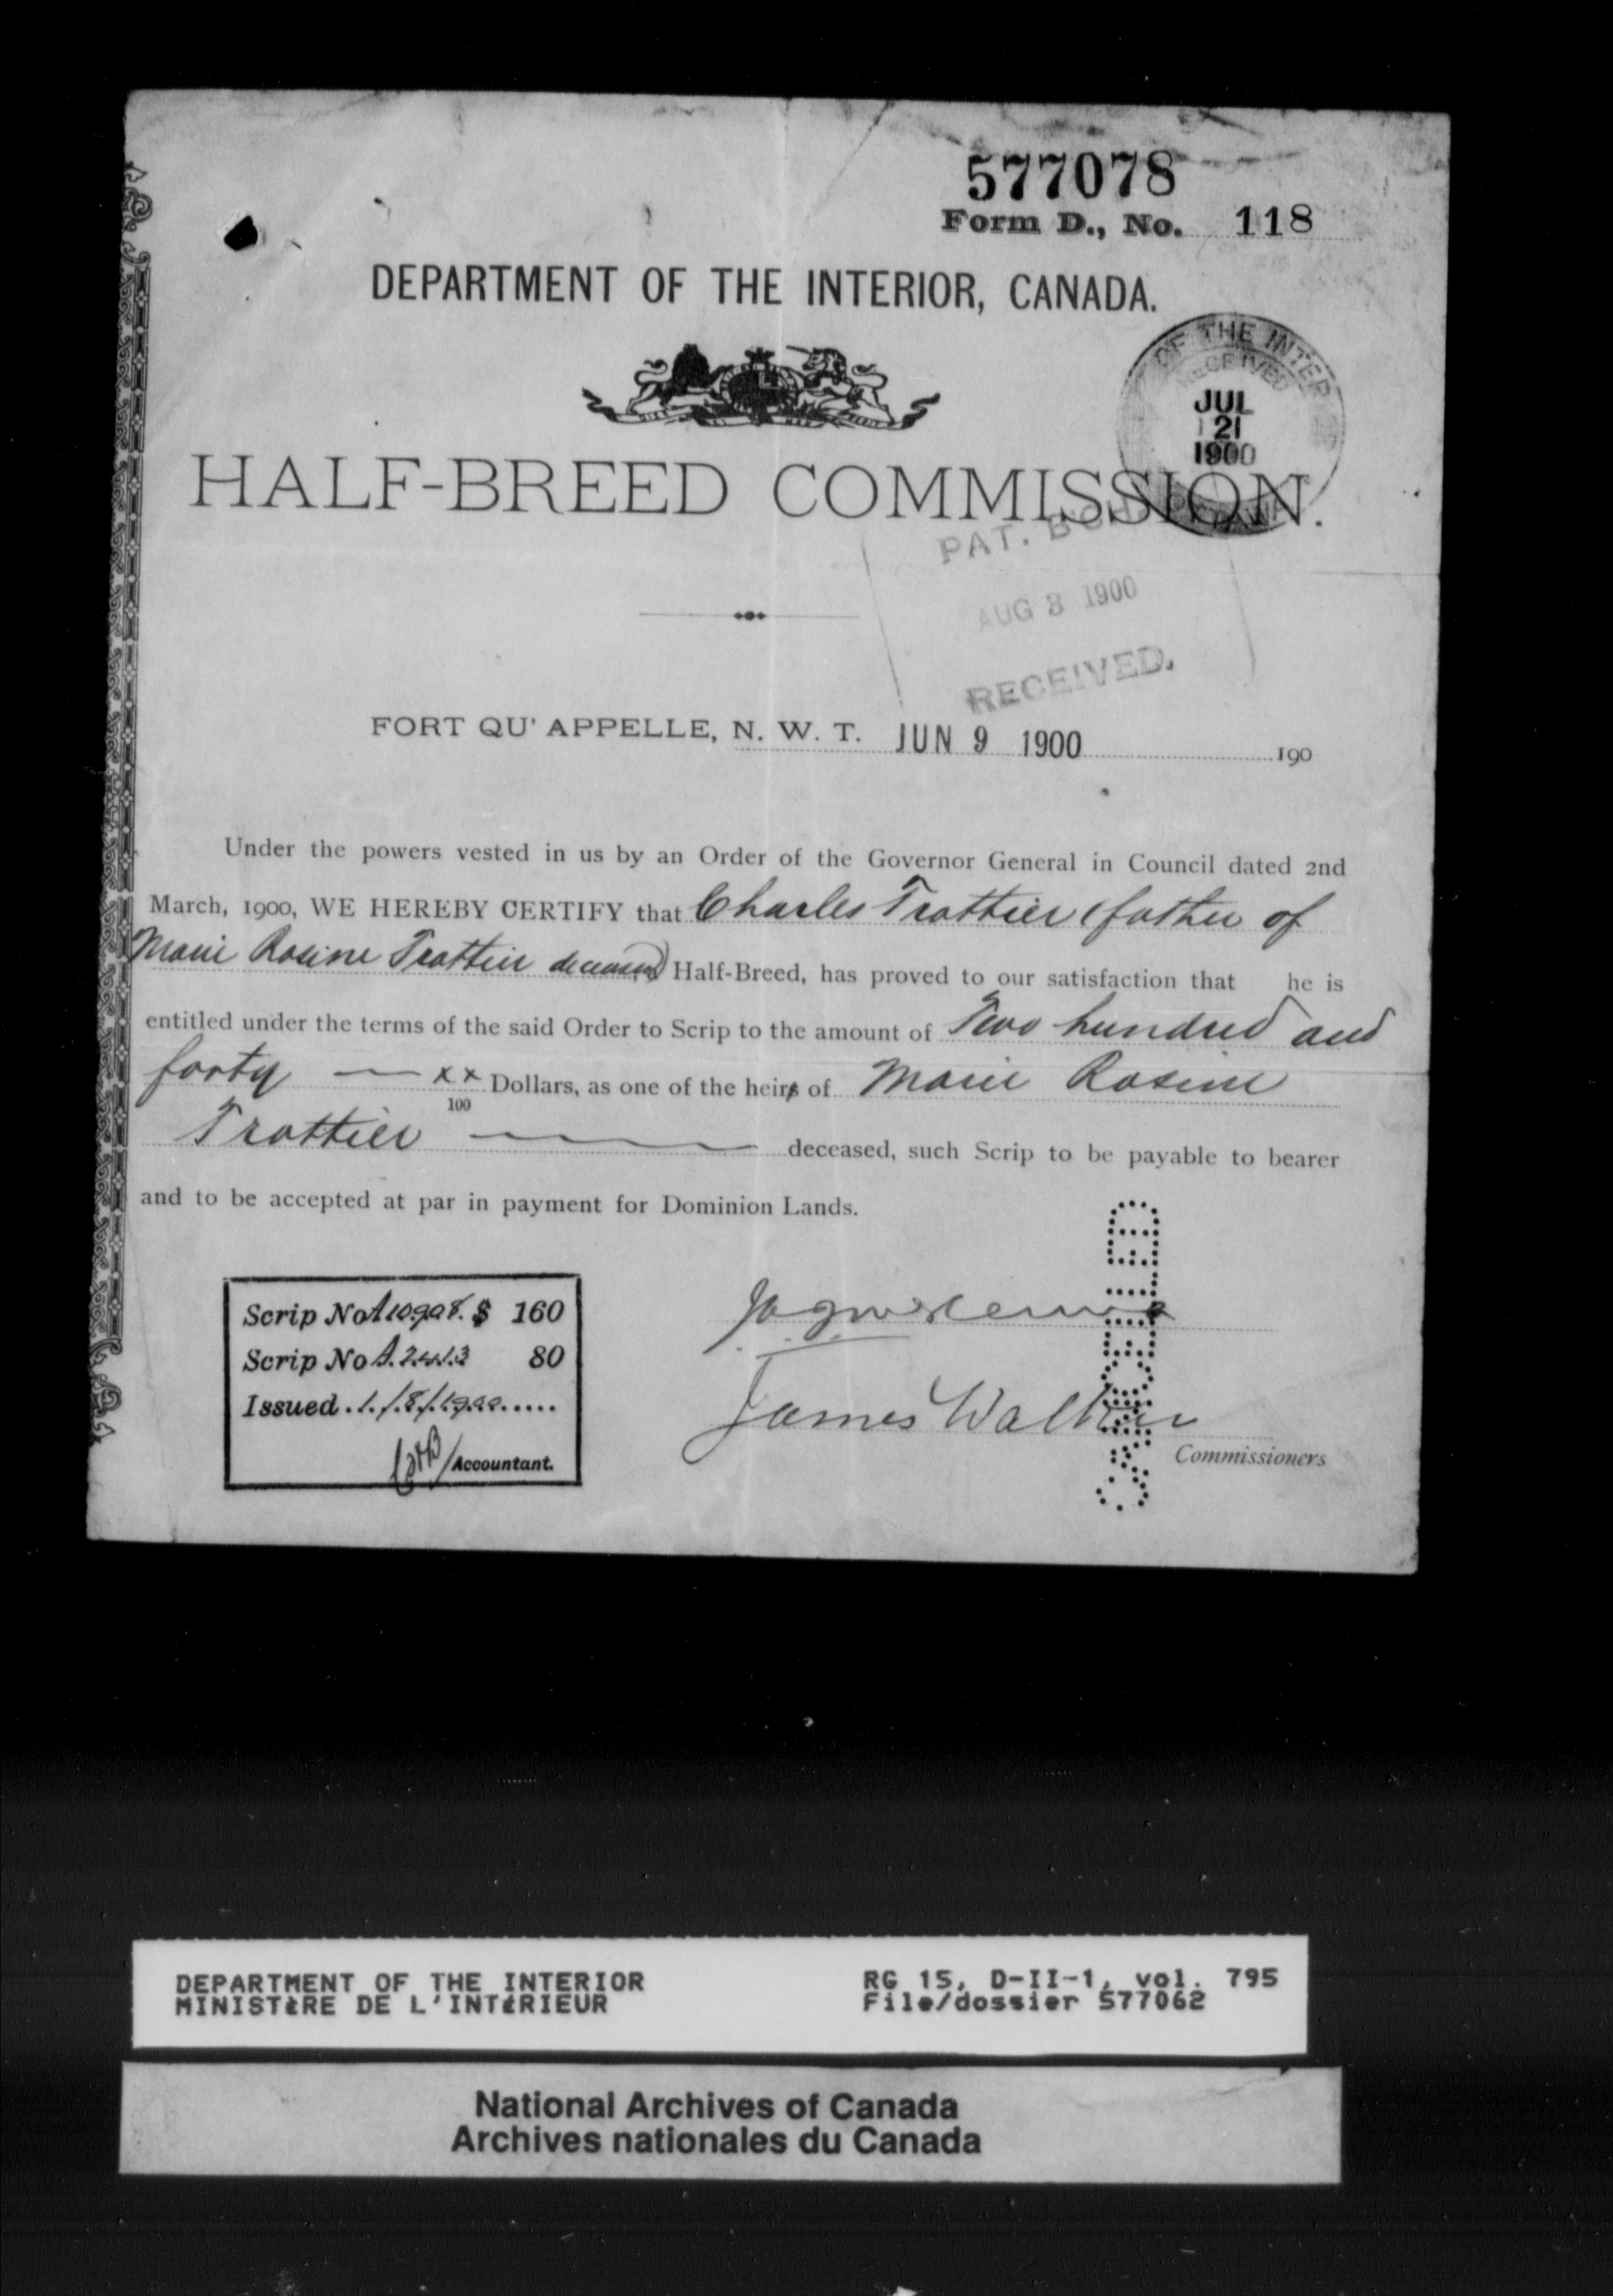 577078
Form D., No. 118
DEPARTMENT OF THE INTERIOR, CANADA.
OF THE INTER
RECEIVED
JUL
21
1900
HALF-BREED COMMISSION.
PAT.
AUG 3 1900
RECEIVED.
FORT QU'APPELLE, N. W. T. JUN 9 1900 190
Under the powers vested in us by an Order of the Governor General in Council dated 2nd
March, 1900, WE HEREBY CERTIFY that Charles Trottier (father of
Marie Rosine Trottier deceased) Half-Breed, has proved to our satisfaction that he is
entitled under the terms of the said Order to Scrip to the amount of Two hundred and
forty — xx/100 Dollars, as one of the heirs of Marie Rosine
Trottier — deceased, such Scrip to be payable to bearer
and to be accepted at par in payment for Dominion Lands.
Scrip No A10908. $ 160
Scrip No A.2413 80
Issued. 1/8/1900.....
Accountant.
James Walker
Commissioners
DEPARTMENT OF THE INTERIOR
MINISTÈRE DE L'INTÉRIEUR
RG 15, D-II-1, vol. 795
File/dossier 577062
National Archives of Canada
Archives nationales du Canada